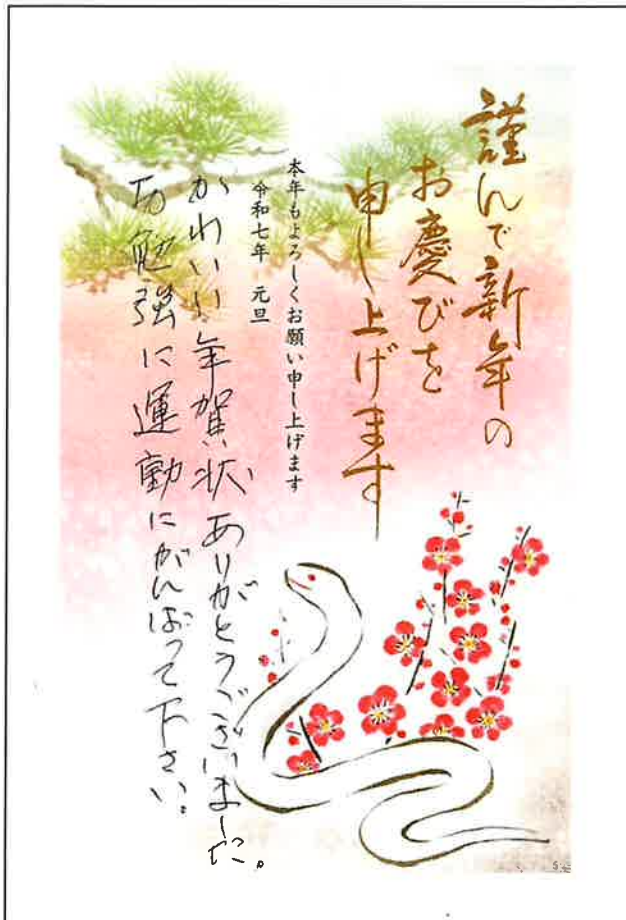 謹んで新年の
お慶びを
申し上げます
本年もよろしくお願い申し上げます
令和七年　元旦
かわいい年賀状ありがとうございました。
お勉強に運動にがんばって下さい。